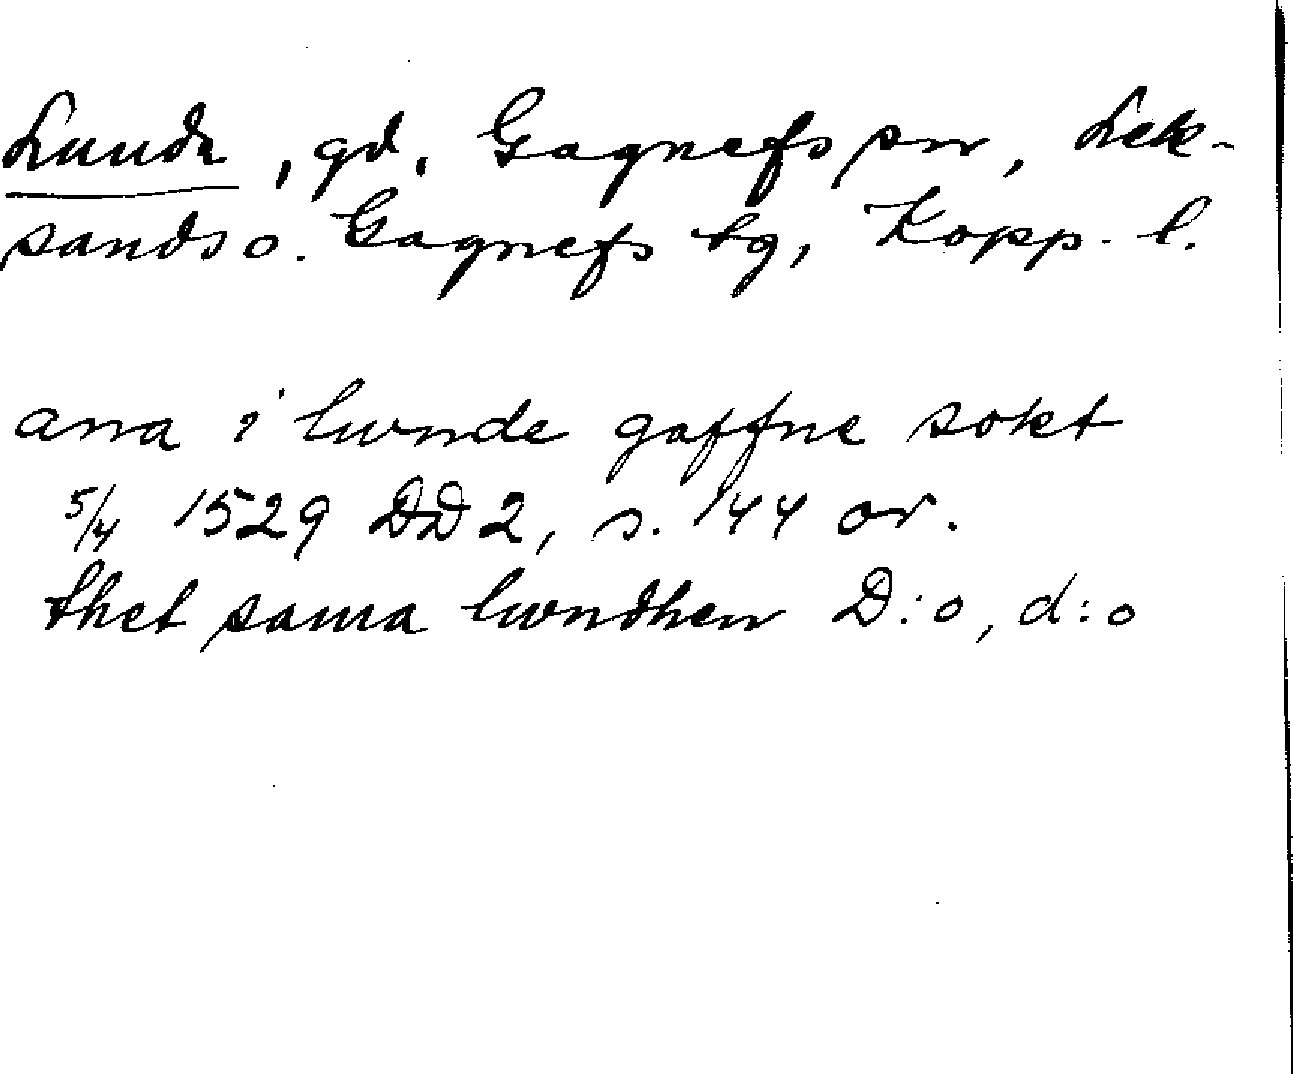 Lunde, gd, Gagnefs sn, Lek-
sands o. Gagnefs tg, Kopp. l.
arra i lwnde gaffne sokt
5/4 1529 DD 2, s. 144 or.
thet sama lwndhen D:o, d:o